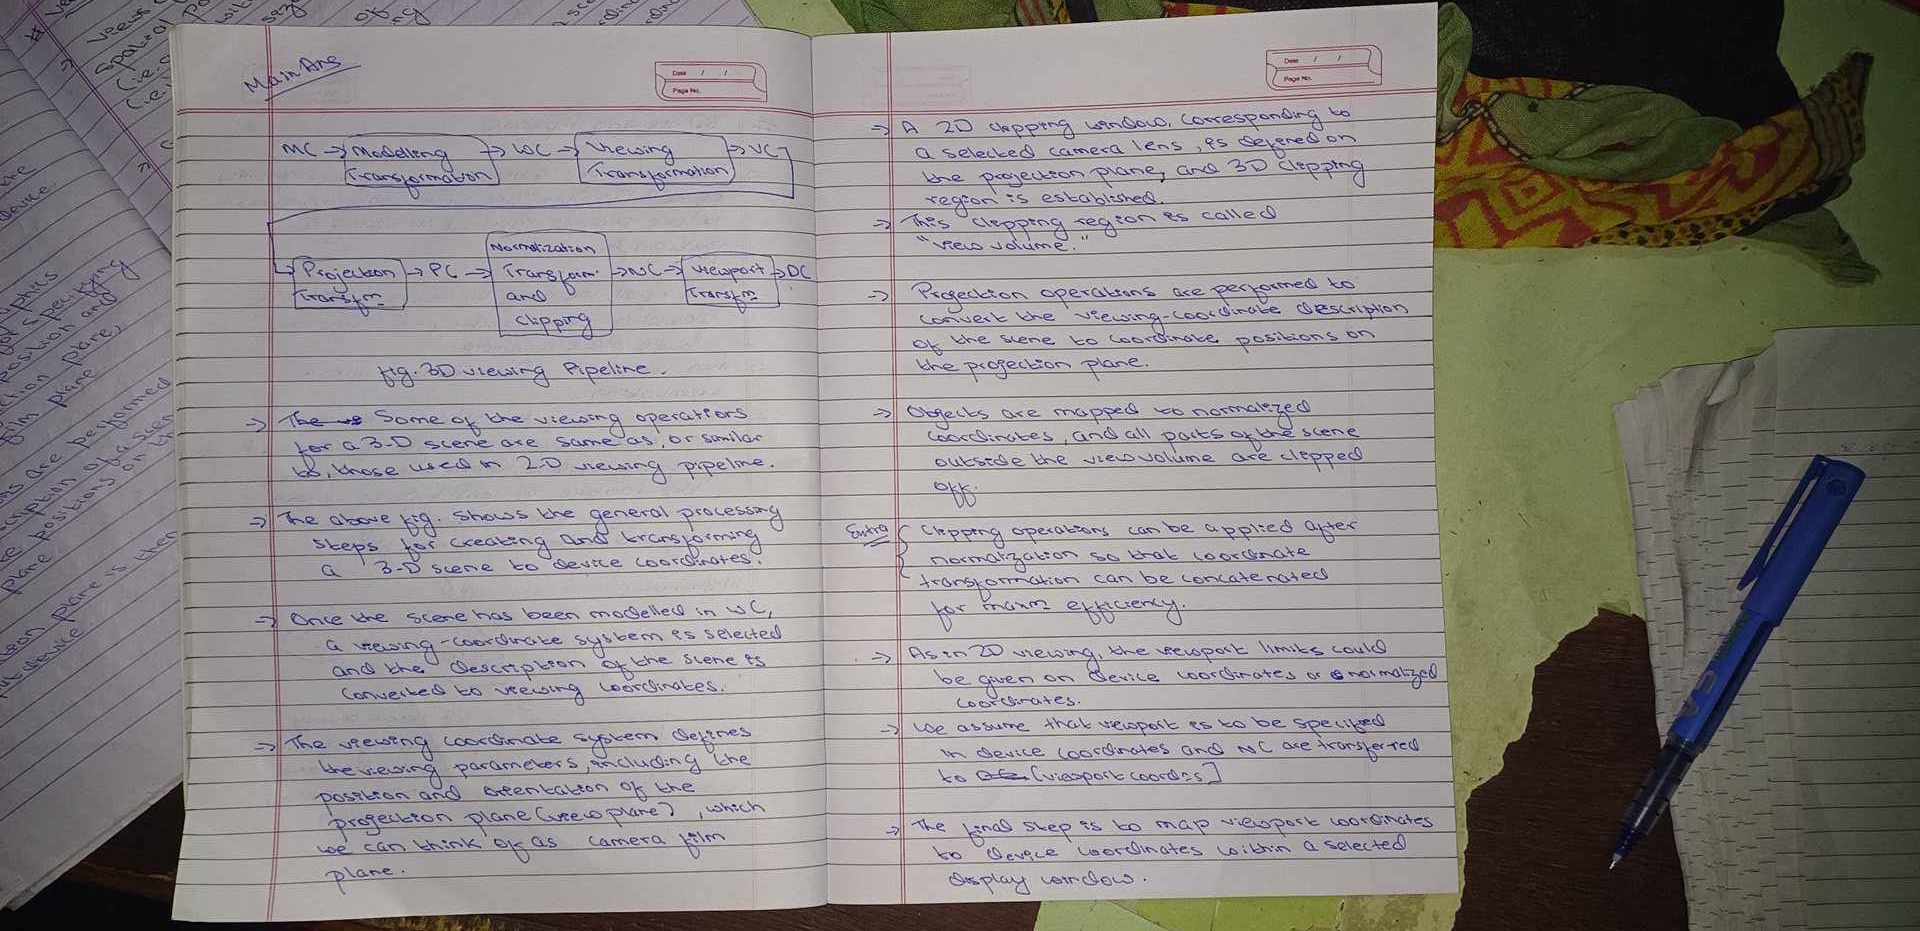 Main Ans
Date / /
Page No.
MC → Modelling Transformation → WC → Viewing Transformation → VC
Projection Transfm → PC → Normalization Transform. and clipping → NC → Viewport Transfm → DC
fig. 3D viewing Pipeline.
→ Some of the viewing operations
for a 3-D scene are same as, or similar
to, those used in 2-D viewing pipeline.
→ The above fig. shows the general processing
steps for creating and transforming
a 3-D scene to device coordinates.
→ Once the scene has been modelled in WC,
a viewing-coordinate system is selected
and the description of the scene is
converted to viewing coordinates.
→ The viewing coordinate system defines
the viewing parameters, including the
position and orientation of the
projection plane (view plane), which
we can think of as camera film
plane.
Date / /
Page No.
→ A 2D clipping window, corresponding to
a selected camera lens, is defined on
the projection plane, and 3D clipping
region is established.
→ This clipping region is called
"view volume."
→ Projection operations are performed to
convert the viewing-coordinate description
of the scene to coordinate positions on
the projection plane.
→ Objects are mapped to normalized
coordinates, and all parts of the scene
outside the view volume are clipped
off.
Extra { Clipping operations can be applied after
normalization so that coordinate
transformation can be concatenated
for maxm efficiency.
→ As in 2D viewing, the viewport limits could
be given on device coordinates or normalized
coordinates.
→ We assume that viewport is to be specified
in device coordinates and NC are transferred
to [viewport coordns]
→ The final step is to map viewport coordinates
to device coordinates within a selected
display window.